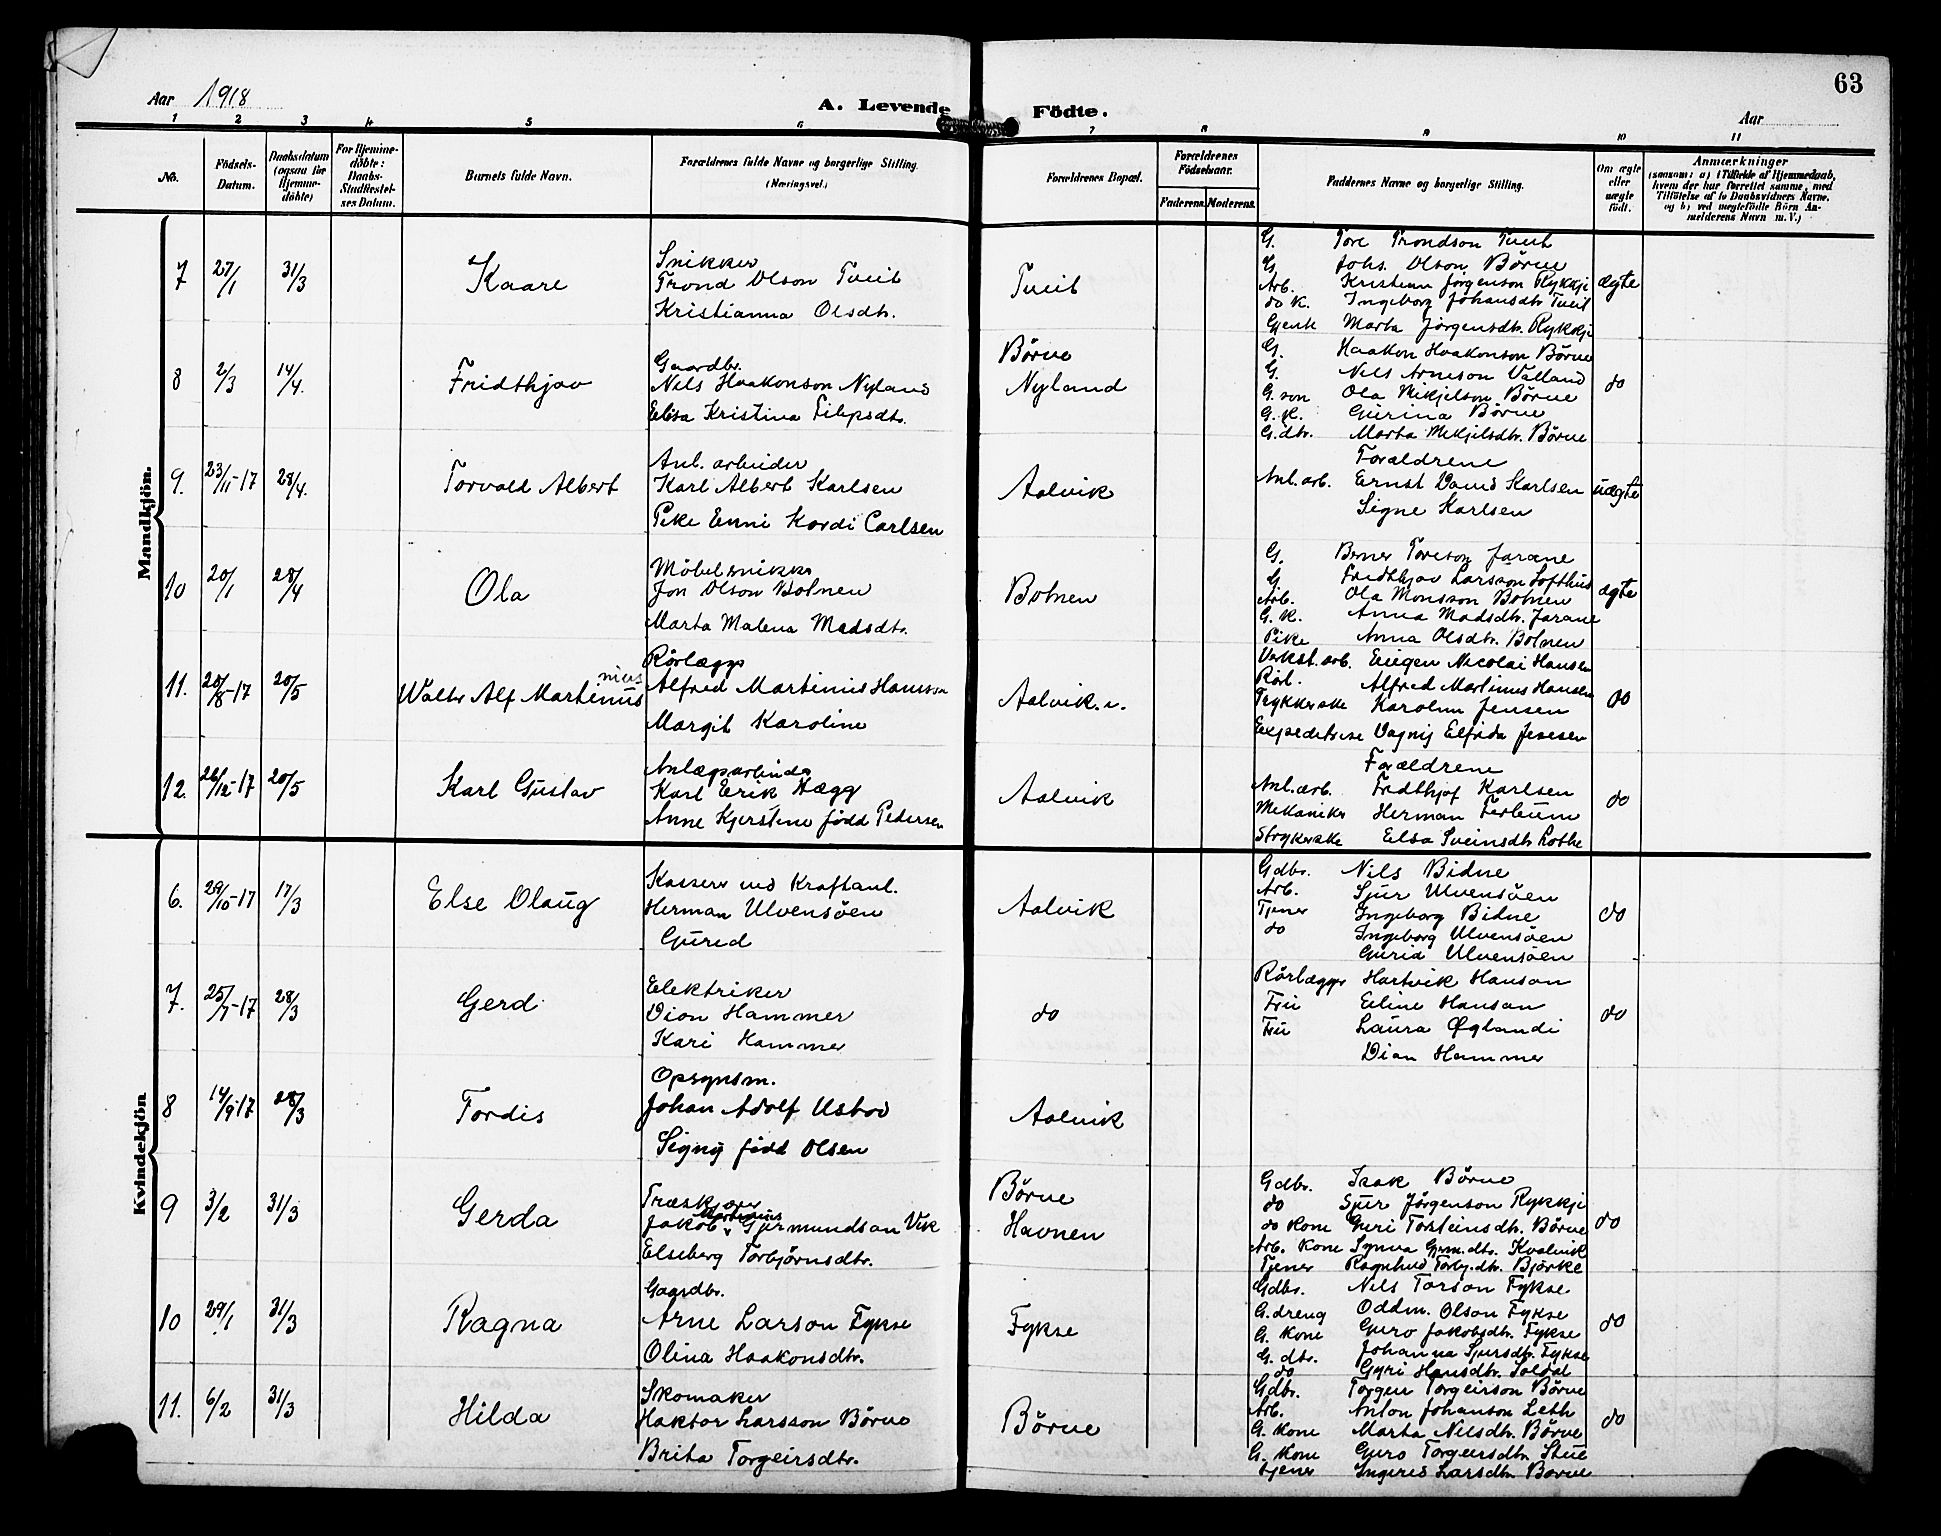 63
Aar 1918
A. Levende Födte.
Aar
1 2 3 4 5 6 7 8 9 10 11
No.
Födsels-Datum.
Daabsdatum (ogsaa for Hjemme-döbte)
For Hjemme-döbte: Daabs-Stadfæstel-ses Datum.
Barnets fulde Navn.
Forældrenes fulde Navne og borgerlige Stilling. (Næringsvei.)
Forældrenes Bopæl.
Forældrenes Födselsaar.
Faderens. Moderens.
Faddernes Navne og borgerlige Stilling.
Om ægte eller uægte födt.
Anmærkninger
(saasom: a) i Tilfælde af Hjemmedaab, hvem der har forrettet samme, med Tilföielse af to Daabsvidners Navne, og b) ved uægtefödte Börn An-melderens Navn m. V.)
Mandkjön.
7 27/1 31/3 Kaare
Snikker
Trond Olson Tveit
Kristianna Olsdtr.
Tveit
G. Tore Trondson Tveit
G. Johs. Olson Börve
Arb. Kristian Jörgenson Rykkje
do K. Ingeborg Johansdtr Tveit
Gjent Marta Jörgensdtr. Rykkje
ægte
8 2/3 14/4. Fridthjov
Gaardbr.
Nils Haakonson Nyland
Elisa Kristina Filipsdtr.
Börve
Nyland
G. Haakon Haakonson Börve
G. Nils Arneson Valland
G. son Ola Mikjelson Börve
G. K. Gurina Börve
G. dtr. Marta Mikjelsdtr. Börve
do
9. 23/11-17 28/4. Torvald Albert
Anl. arbeider
Karl Albert Karlsen
Pike Enni Kordi Carlsen
Aalvik
Forældrene
Anl. arb. Ernst David Karlsen
Signe Karlsen
uægte
10 20/1 28/4 Ola
Möbelsnikker
Jon Olson Botnen
Marta Malena Madsdtr.
Botnen
G. Berner Toreson Jarane
G Fridthjov Larsson Lofthus
Arb. Ola Monsson Botnen
G. K. Anna Madsdtr. Jarane
Pike Anna Olsdtr. Botnen
ægte
11. 20/8-17 20/5 Walter Alf Martinus
nius
Rörlægger
Alfred Martinius Hansen
Margit Karoline
Aalvik.
Verkst. arb. Eugen Nicolai Hansen
Rörl. Alfred Martinus Hansen
Trykkerske Karolin Jensen
Expeditrise Dagny Elfrida Jensen
do
12. 26/12-17 20/5 Karl Gustav
Anlægsarbeider
Karl Erik Hægg
Anne Kjerstine född Pedersen
Aalvik
Forældrene
Anl. arb. Fridthjof Karlsen
Mekaniker Herman
Strykerske Elsa Sveinsdtr Lothe
do
Kvindekjön
6. 29/10-17 17/3 Else Olaug
Kasserer ved Kraftanl.
Herman Ulvensöen
Gured
Aalvik
Gdbr. Nils Bidne
Arb. Sjur Ulvensöen
Tjener Ingeborg Bidne
do Ingeborg Ulvensöen
Gurid Ulvensöen
do
7. 25/7-17 28/3 Gerd
Elektriker
Dion Hammer
Kari Hammer
do
Rörlægger Hartvik Hanson
Fru Eline Hansan
Fru Laura Øglandi
Dion Hammer
do
8 14/9-17 28/3 Tordis
Opsynsm.
Johan Adolf
Signy född Olsen
Aalvik
9 3/2 31/3 Gerda
Træskjærer
Martinius
Jakob Gjermundsan Vik
Elseberg Torbjörnsdtr.
Börve
Havnen
Gdbr. Isak Börve
do Sjur Jörgenson Rykkje
do Kone Guri Torsteinsdtr. Börve
Arb. Kone Synva Gjrm.dtr. Kvalvik
Tjener Ragnhild Torbj.dtr. Björke
do
10 29/1 31/3 Ragna
Gaardbr.
Arne Larson Fykse
Olina Haakonsdtr.
Fykse
Gdbr. Nils Torson Fykse
G. dreng Oddm. Olson Fykse
G. Kone Guro Jakobsdtr. Fykse
G. dtr. Johanna Sjursdtr. Fykse
do Gyri Hansdtr. Soldal
do
11. 6/2 31/3 Hilda
Skomaker
Haktor Larsson Börve
Brita Torgeirsdtr.
Börve
Gdbr. Torgeir Torgeirson Börve
Arb. Anton Johanson Leth
G. Kone Marta Nilsdtr. Börve
G. Kone Guro Torgeirsdtr. Stue
tjener Ingeres Larsdtr Börve
do